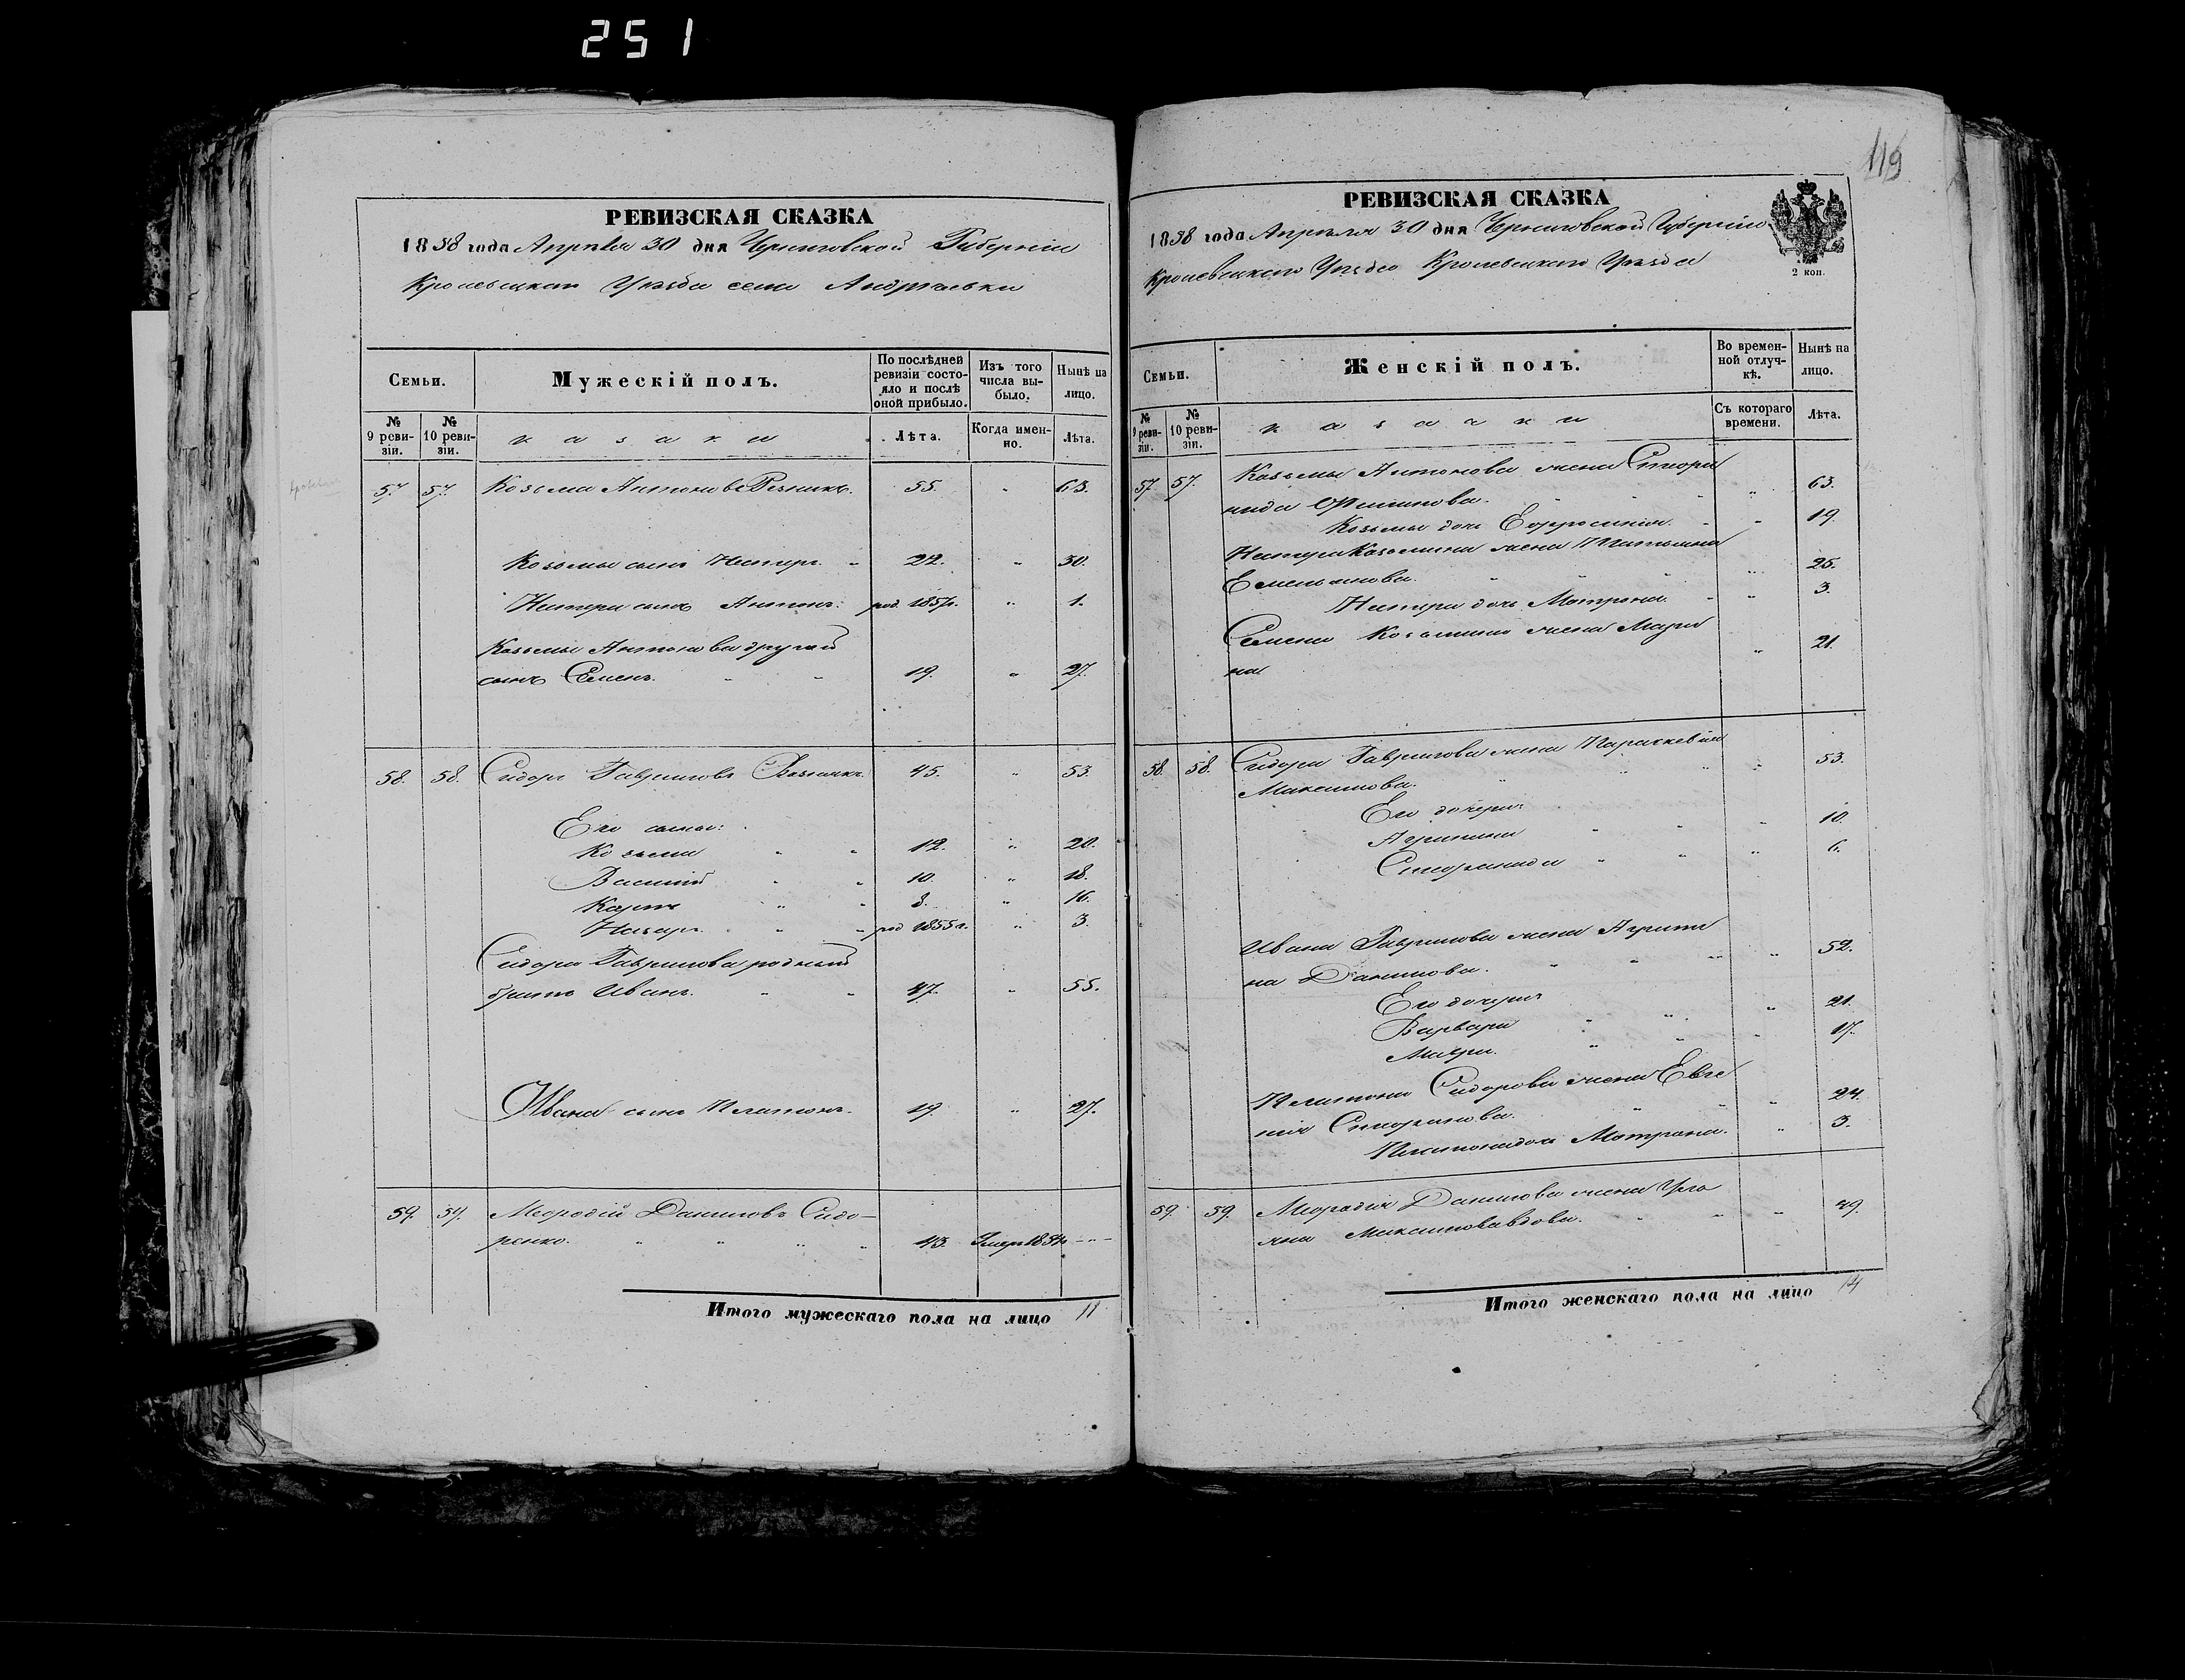 251
РЕВИЗСКАЯ СКАЗКА
1858 года Апреля 30 дня Черниговской Губерніи
Кролевецкаго Уезда села Андреевки
Семьи.
Мужескій полъ.
По послѣдней ревизіи состояло и послѣ оной прибыло.
Изъ того числа выбыло.
Нынѣ на лицо.
№ 9 ревизіи.
№ 10 ревизіи.
казаки
Лѣта.
Когда именно.
Лѣта.
57. 57. Козьма Антоновъ Резникъ. 55. " 63.
Козьмы сынъ Нестеръ. " 22. " 30.
Нестера сынъ Антонъ. род. 1857г. " 1.
Козьмы Антонова другой
сынъ Семенъ. " " 19. " 27.
58. 58. Сидоръ Гавриловъ Резникъ. 45. " 53.
Его сыны:
Козьма " " 12. " 20.
Василій " " 10. " 18.
Карпъ " " 8. " 16.
Назаръ. " " род 1855г. " 3.
Сидора Гаврилова родный
братъ Иванъ. " " 47. " 55.
Ивана сынъ Платонъ. 19 " 27.
59. 59. Мефодій Даниловъ Сидо-
ренко. " " " " 43. Умеръ 1854г. - " -
Итого мужескаго пола на лицо 11
119
РЕВИЗСКАЯ СКАЗКА
2 коп.
1858 года Апреля 30 дня Черниговской Губерніи
Кролевецкаго Уезда Кролевецкаго Уезда
Семьи.
Женскій полъ.
Во временной отлучкѣ.
Нынѣ на лицо.
№ 9 ревизіи.
№ 10 ревизіи.
казачки
Съ котораго времени.
Лѣта.
57. 57. Козьмы Антонова жена Спири
нида " " " " 63.
Козьмы дочь Ефросинія. " " 19.
Нестера Козьмина жена Татьяна
Емельянова. " " " " 25.
Нестера дочь Матрона. " " 3.
Семена Козьмина жена Мари
на " 21.
58. 58. Сидора Гаврилова жена Параскевія " 53.
Максимова.
Его дочери:
Агрипина " " " 10.
" " " 6.
Ивана Гаврилова жена Агрипи
на Данилова. " " " " 52.
Его дочери
Варвара " " " 21.
" " " 17.
Платона Сидорова жена Евге
нія " " " 24.
Платона дочь Матрона. " 3.
59. 59. Мефодія Данилова жена Улья
яна Максимова вдова. " " " 49.
Итого женскаго пола на лицо 14